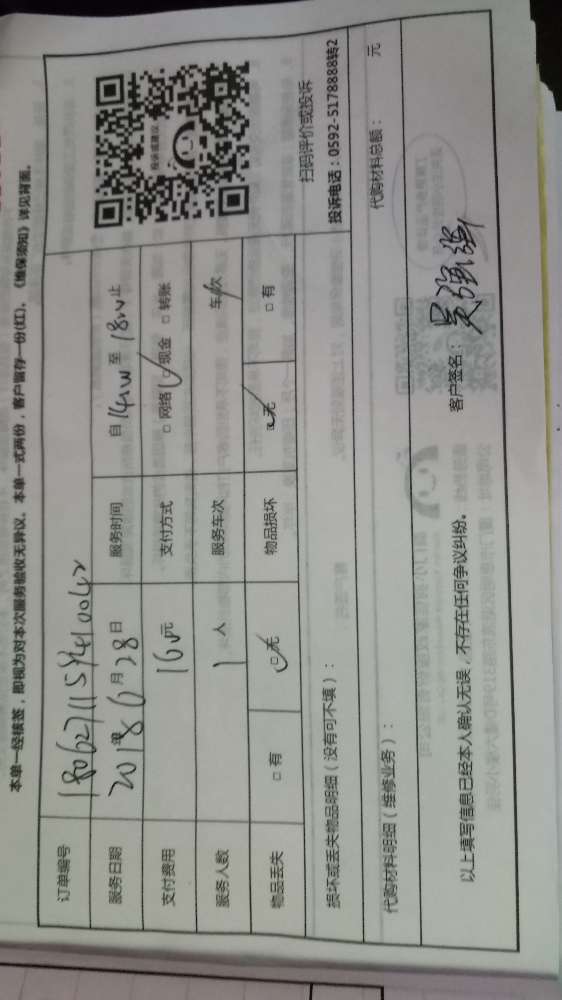 本单一经核签，即视为对本次服务验收无异议。本单一式两份，客户留存一份(红)。《维保须知》详见背面。
订单编号
服务日期 2018年6月28日 服务时间 自 至 18:00 止
支付费用 160元 支付方式 □ 网络 □ 现金 □ 转账
服务人数 1 人 服务车次 车/次
物品丢失 □ 有 □ 无 物品损坏 □ 无 □ 有
投诉或建议
扫码评价或投诉
投诉电话：0592-5178888转2
损坏或丢失物品明细（没有可不填）：
代购材料明细（维修业务）： 代购材料总额： 元
以上填写信息已经本人确认无误，不存在任何争议纠纷。
客户签名：吴强强